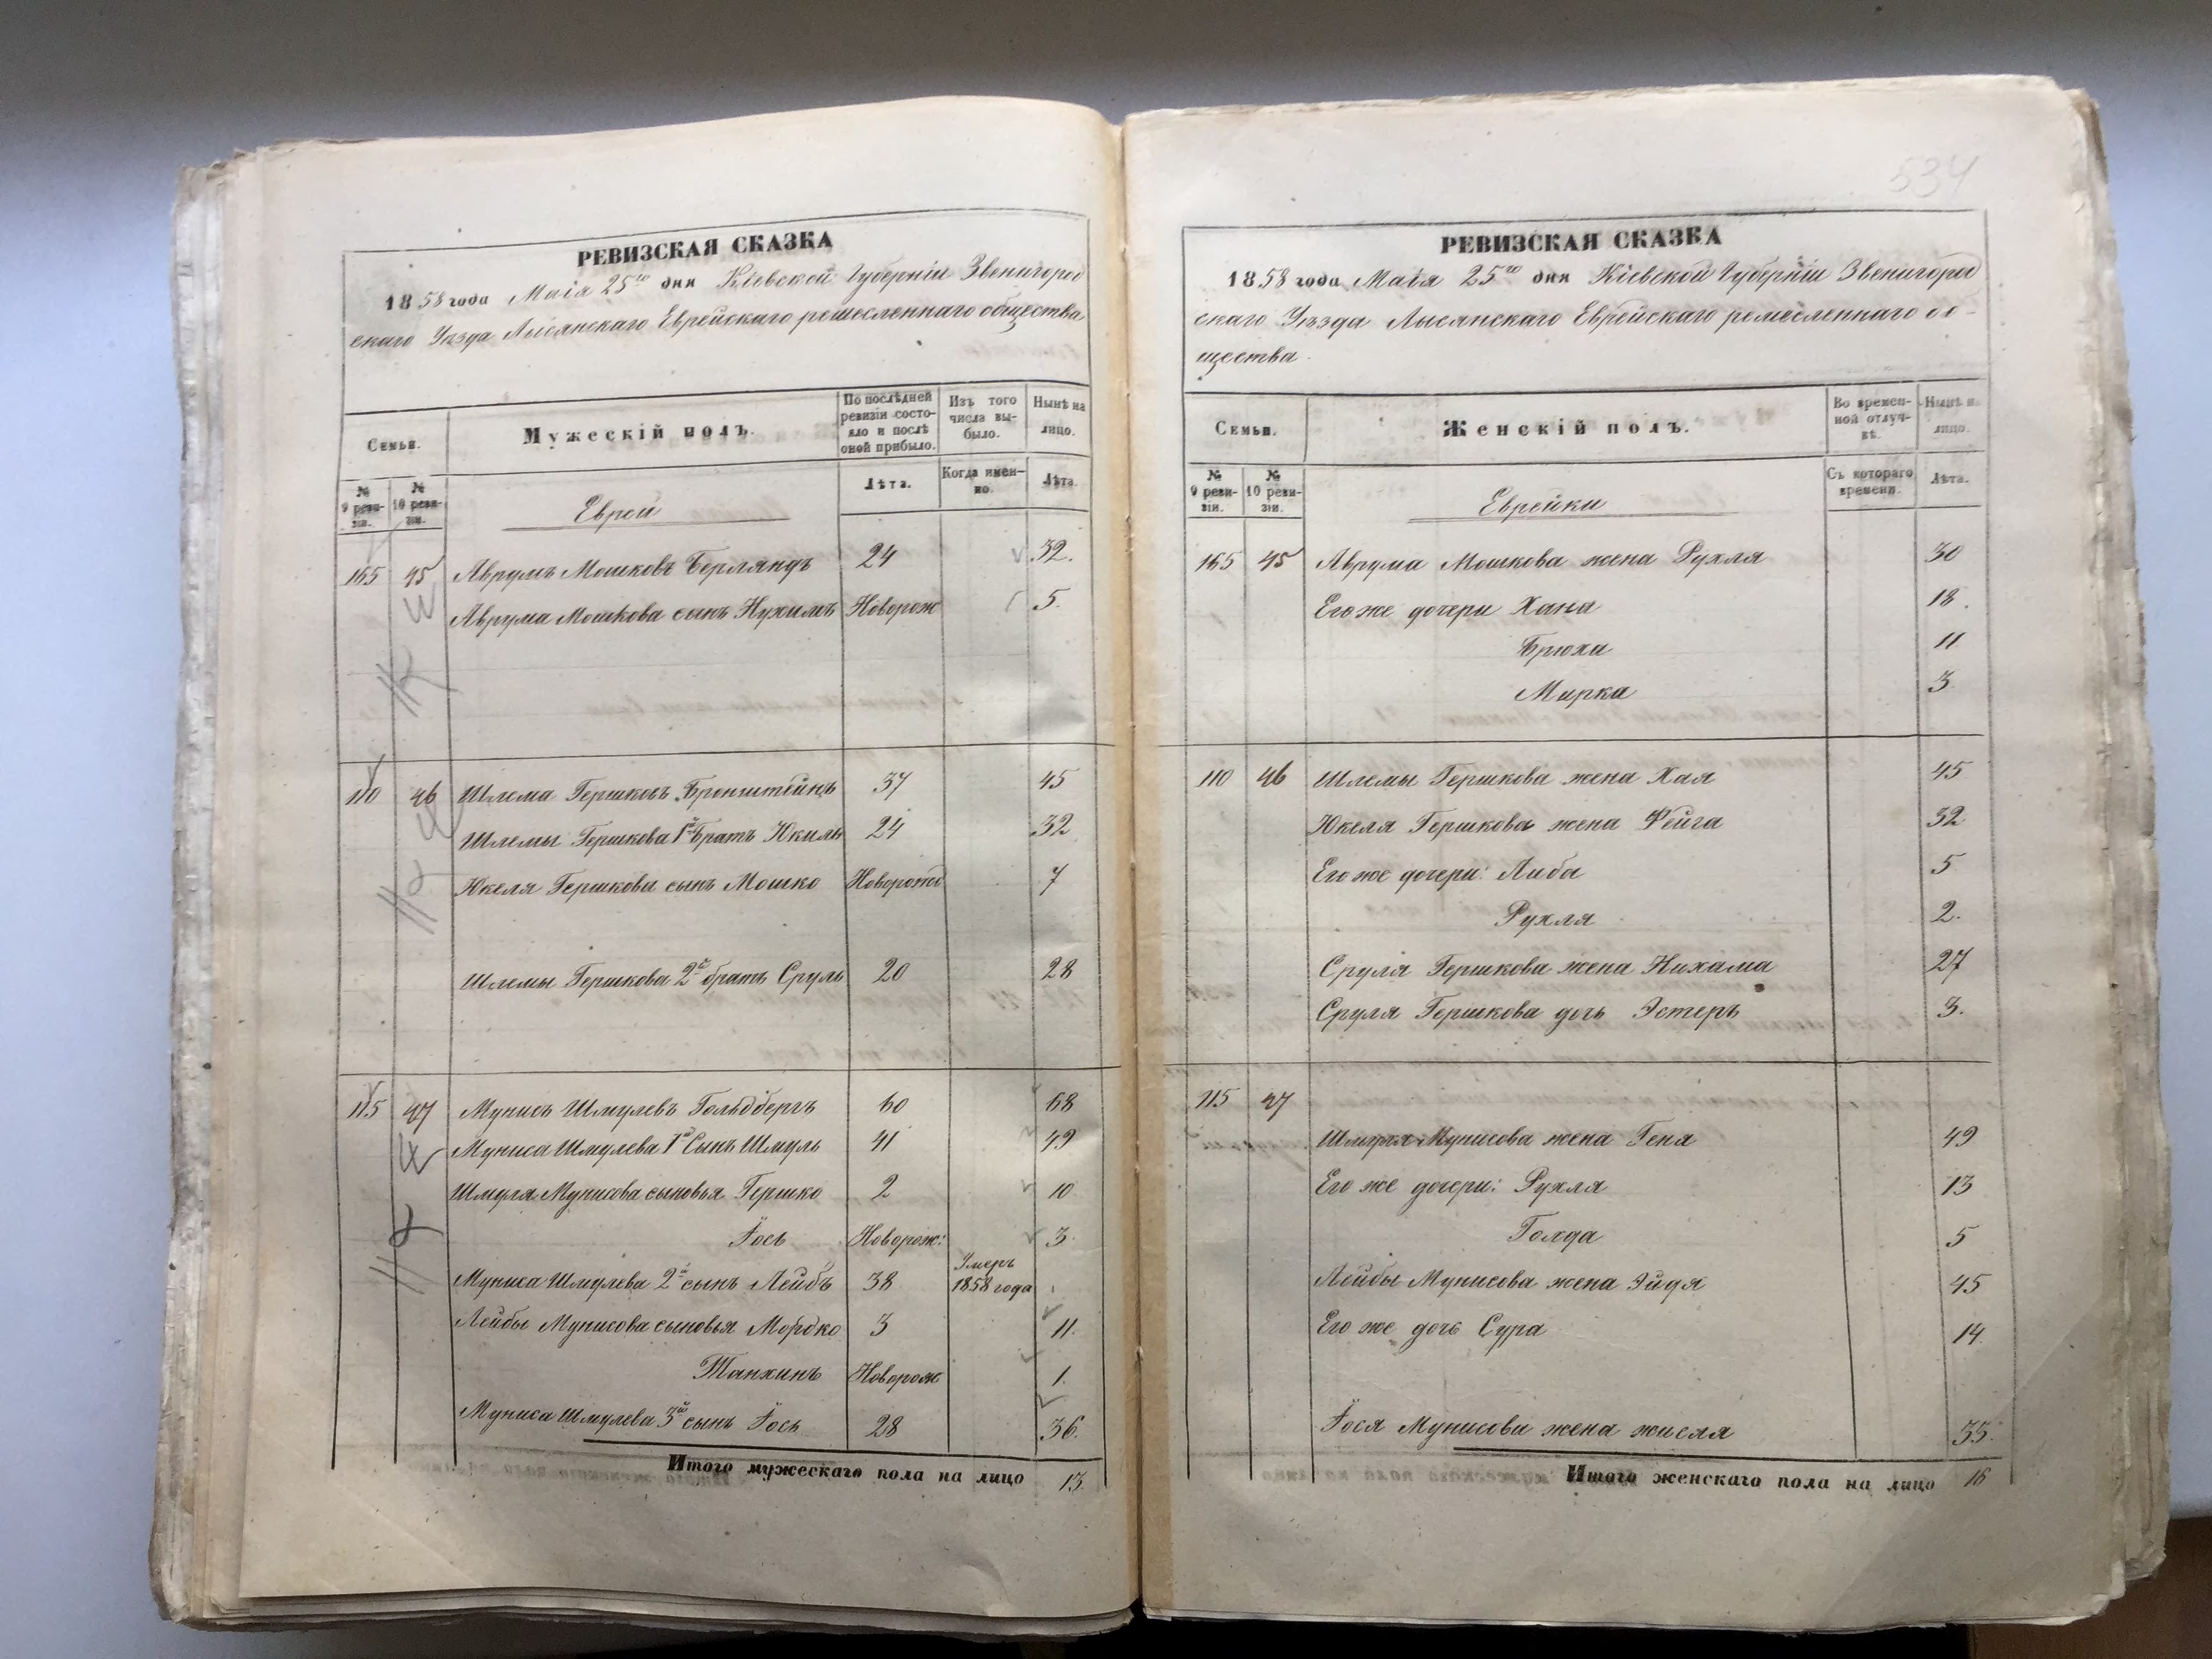 РЕВИЗСКАЯ СКАЗКА
1858 года Маія 25го дня Кіевской Губерніи Звенигород
скаго Уѣзда Лысянскаго Еврейскаго ремесленнаго общества
Семьи.
Мужескій полъ.
По послѣдней ревизіи состо-
яло и послѣ оной прибыло.
Изъ того числа вы-
было.
Нынѣ на лицо.
№ 9 реви-
зіи.
№ 10 реви-
зіи.
Еврей
Лѣта.
Когда имен-
но.
Лѣта.
165 45 Аврумъ Мошковъ Берляндъ 24 32.
Аврума Мошкова сынъ Нухимъ Новорож 5.
110 46 Шлема Гершковъ Бронштейнъ 37 45
Шлемы Гершкова 1й Братъ Юкиль 24 32
Юкеля Гершкова сынъ Мошко Новорожд 7
Шлемы Гершкова 2й братъ Сруль 20 28
115 47 Мунисъ Шмулевъ Гольдбергъ 60 68
Муниса Шмулева 1й Сынъ Шмуль 41 49
Шмуля Мунисова сыновья Гершко 2 10
Іось Новорож: 3.
Муниса Шмулева 2й сынъ Лейбъ 38 Умеръ 1858 года
Лейбы Мунисова сыновья Мордко 3 11.
Танхинъ Новорож 1.
Муниса Шмулева 3й сынъ Іось 28 36.
Итого мужескаго пола на лицо 13
534
РЕВИЗСКАЯ СКАЗКА
1858 года Маія 25го дня Кіевской Губерніи Звенигород
скаго Уѣзда Лысянскаго Еврейскаго ремесленнаго об-
щества.
Семьи.
Женскій полъ.
Во времен-
ной отлуч-
кѣ.
Нынѣ на лицо.
№ 9 реви-
зіи.
№ 10 реви-
зіи.
Еврейки
Съ котораго времени.
Лѣта.
165 45 Аврума Мошкова жена Рухля 30
Его же дочери Хана 18.
Брюха 11
Мирка 3.
110 46 Шлемы Гершкова жена Хая 45
Юкеля Гершкова жена Фейга 32
Его же дочери: Либа 5
Рухля 2.
Сруля Гершкова жена Нихама 27
Сруля Гершкова дочь Эстеръ 3.
115 47
Шмуля Мунисова жена Геня 49
Его же дочери: Рухля 13
Голда 5
Лейбы Мунисова жена Эйдя 45
Его же дочь Сура 14.
Іося Мунисова жена жисля 35.
Итого женскаго пола на лицо 16